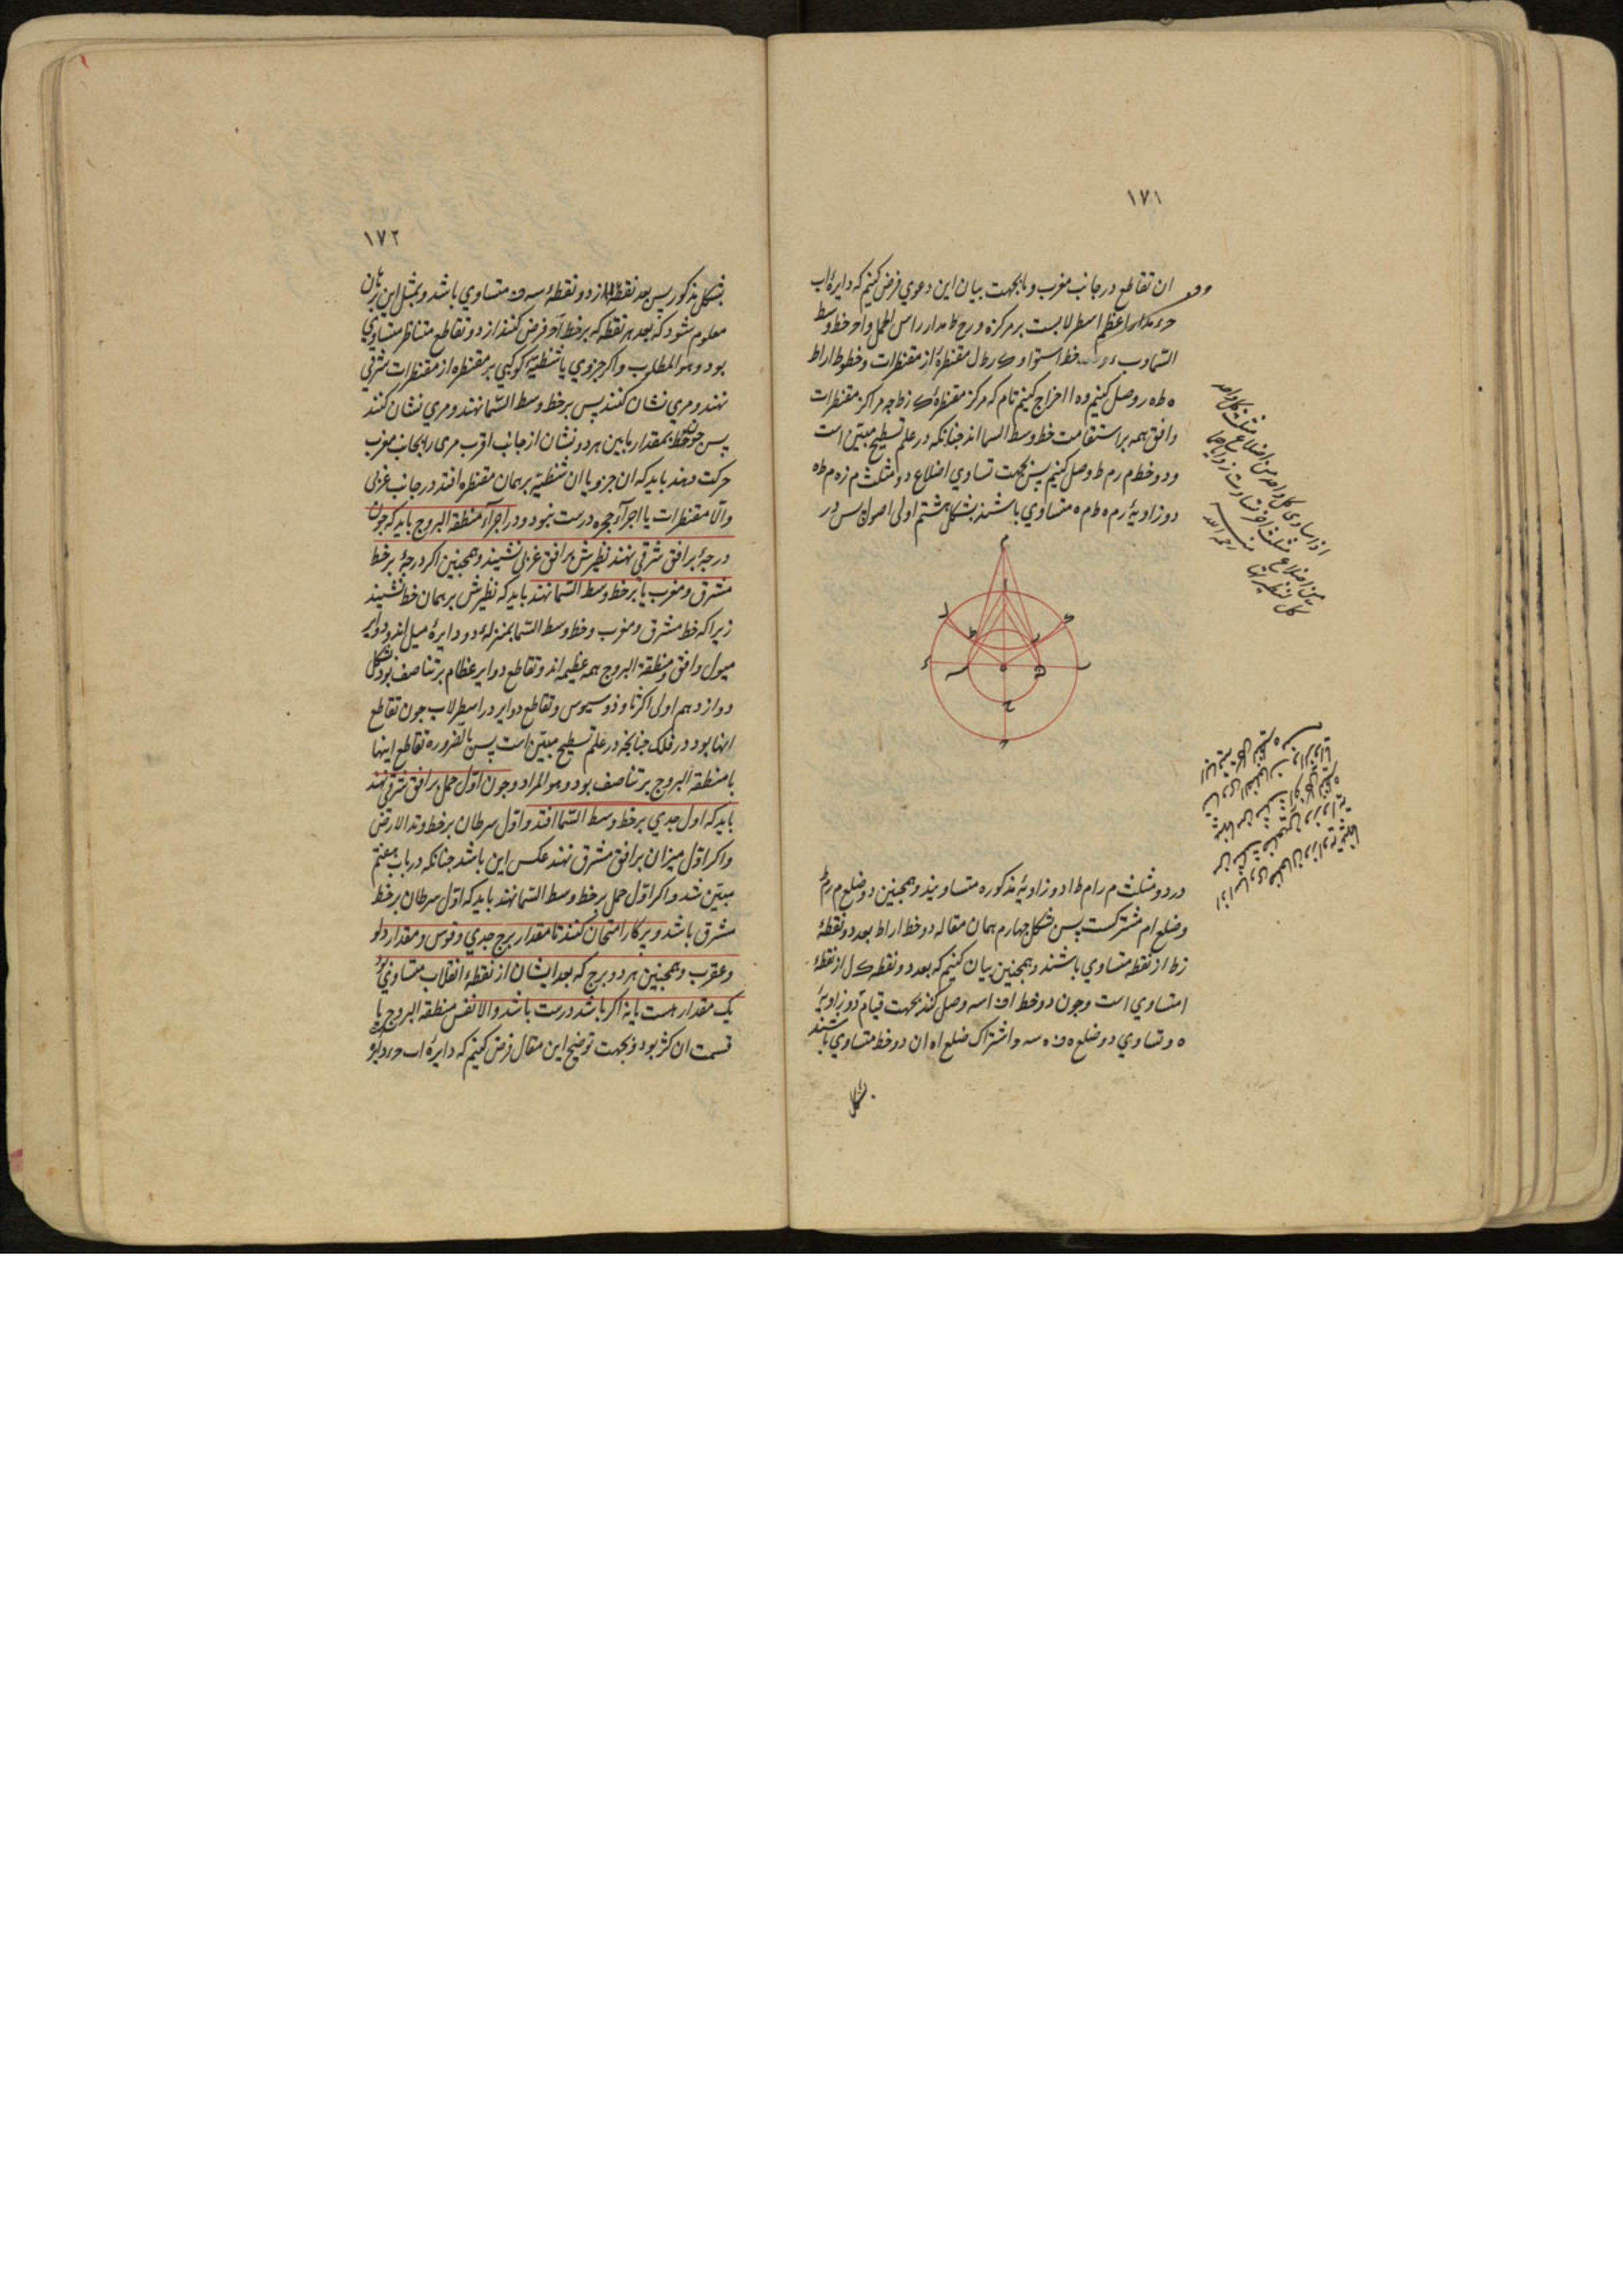 ١٧١
ان تقاطع در جانب مغرب و ما بجهت بیان این دعوی فرض کنیم که دایرهٔ اب
حء مدار اعظم اسطرلابست بر مرکز ه و رح ط مدار راس الحمل و احر خط وسط
السما و ب ء خط استوا و ک ر ط ل مقنطرهٔ از مقنطرات و خطوط ار اط
ه ط ه ر وصل کنیم و ه ا اخراج کنیم تا م که مرکز مقنطرهٔ ک ر ط چه مراکز مقنطرات
و افق همه بر استقامت خط وسط السما اند چنانکه در علم تسطیح مبیّن است
و دو خط م ر م ط وصل کنیم پس بجهت تساوی اضلاع دو مثلث م ر ه م ط ه
دو زاویهٔ ر م ه ط م ه متساوی باشند بشکل هشتم اولی اصول پس در
در دو مثلث م ر ا م ط ا دو زاویهٔ مذکوره متساویند و همچنین دو ضلع م ر م ط
و ضلع ام مشترکست پس بشکل چهارم همان مقاله دو خط ار اط بعد دو نقطهٔ
ر ط از نقطه متساوی باشند و همچنین بیان کنیم که بعد دو نقطه ک ل از نقطهٔ
ا متساوی است و چون دو خط اف اسه وصل کنند بجهت قیام دو زاویهٔ
ه و تساوی دو ضلع ه ف ه سه و اشتراک ضلع اه ان دو خط متساوی باشند
بشکل
اذا ساوی کل واحد من اضلاع مثلث کل واحد
من اضلاع مثلث اخر تساوت زوایاهما
کل لنظیرتها منه رحمه الله
١٧٢
بشکل مذکور پس بعد نقطهٔ ا از دو نقطهٔ سه ف متساوی باشد و بمثل این برهان
معلوم شود که بعد هر نقطه که بر خط اح فرض کنند از دو تقاطع متناظر متساوی
بود و هو المطلوب و اگر جزوی یا شظیهٔ کوکبی بر مقنطره از مقنطرات شرقی
نهند و مری نشان کنند پس بر خط وسط السما نهند و مری نشان کنند
پس بمقدار مابین هر دو نشان از جانب اقرب مری را بجانب مغرب
حرکت دهند باید که ان جزو یا ان شظیّه بر همان مقنطره افتد در جانب غربی
و الّا مقنطرات یا اجزاء حجره درست نبود و در اجزاء منطقة البروج باید که چون
درجهٔ بر افق شرقی نهند نظیرش بر افق غربی نشیند و همچنین اگر درجهٔ بر خط
مشرق و مغرب یا بر خط وسط السما نهند باید که نظیرش بر همان خط نشیند
زیرا که خط مشرق و مغرب و خط وسط السما بمنزلهٔ دو دایرهٔ میل اند و دوایر
میول و افق و منطقة البروج همه عظیمه اند و تقاطع دوایر عظام بر تناصف بود بشکل
دوازدهم اولی اکر ثاوذوسیوس و تقاطع دوایر در اسطرلاب چون تقاطع
انها بود در فلک چنانچه در علم تسطیح مبیّن است پس بالضروره تقاطع اینها
با منطقة البروج بر تناصف بود و هو المراد و چون اول حمل بر افق شرقی نهند
باید که اول جدی بر خط وسط السما افتد و اوّل سرطان بر خط وتد الارض
و اگر اوّل میزان بر افق مشرق نهند عکس این باشد چنانکه در باب هفتم
مبیّن شد و اگر اوّل حمل بر خط وسط السما نهند باید که اوّل سرطان بر خط
مشرق باشد و بپرکار امتحان کنند تا مقدار برج جدی و قوس و مقدار دلو
و عقرب و همچنین هر دو برج که بعد ایشان از نقطهٔ انقلاب متساوی بود
یک مقدار هست یا نه اگر باشد درست باشد و الا نفس منطقة البروج یا
قسمت ان کژ بود و بجهت توضیح این مقال فرض کنیم که دایرهٔ اب حء مدار